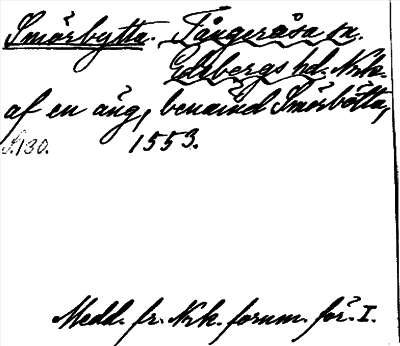 Smörbytta. Tångeråsa sn.
Edsbergs hd. Nrk.
af en äng, benämd Smörbötta,
S.130. 1553.
Medd. fr. Nrk. fornm. för. I.